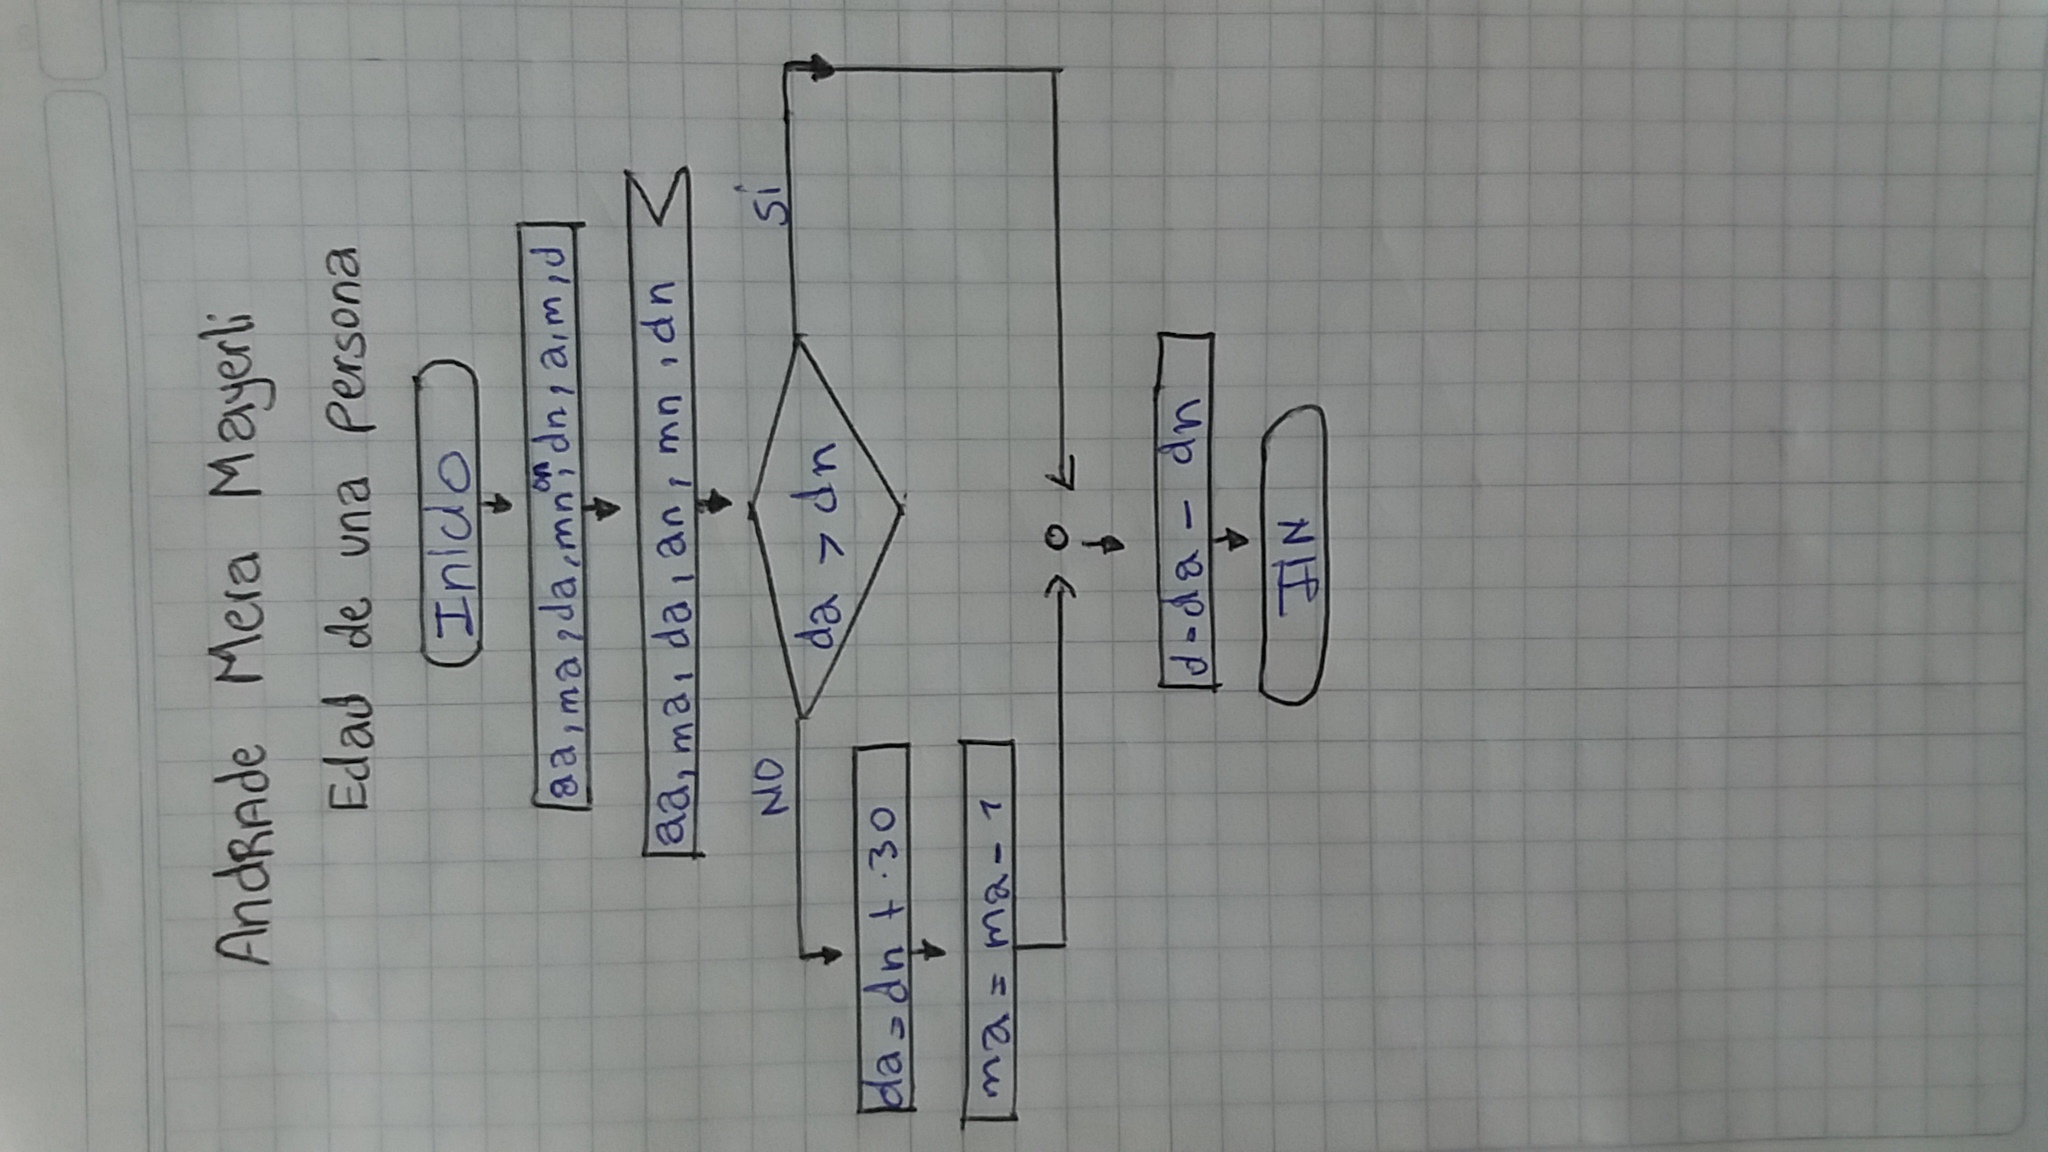 AndRAde Mera Mayerli
Edad de una Persona
Inicio
aa, ma, da, mn, an, dn, a, m, d
aa, ma, da, an, mn, dn
NO
Si
da > dn
da = dn + 30
ma = ma - 1
d = da - dn
FIN